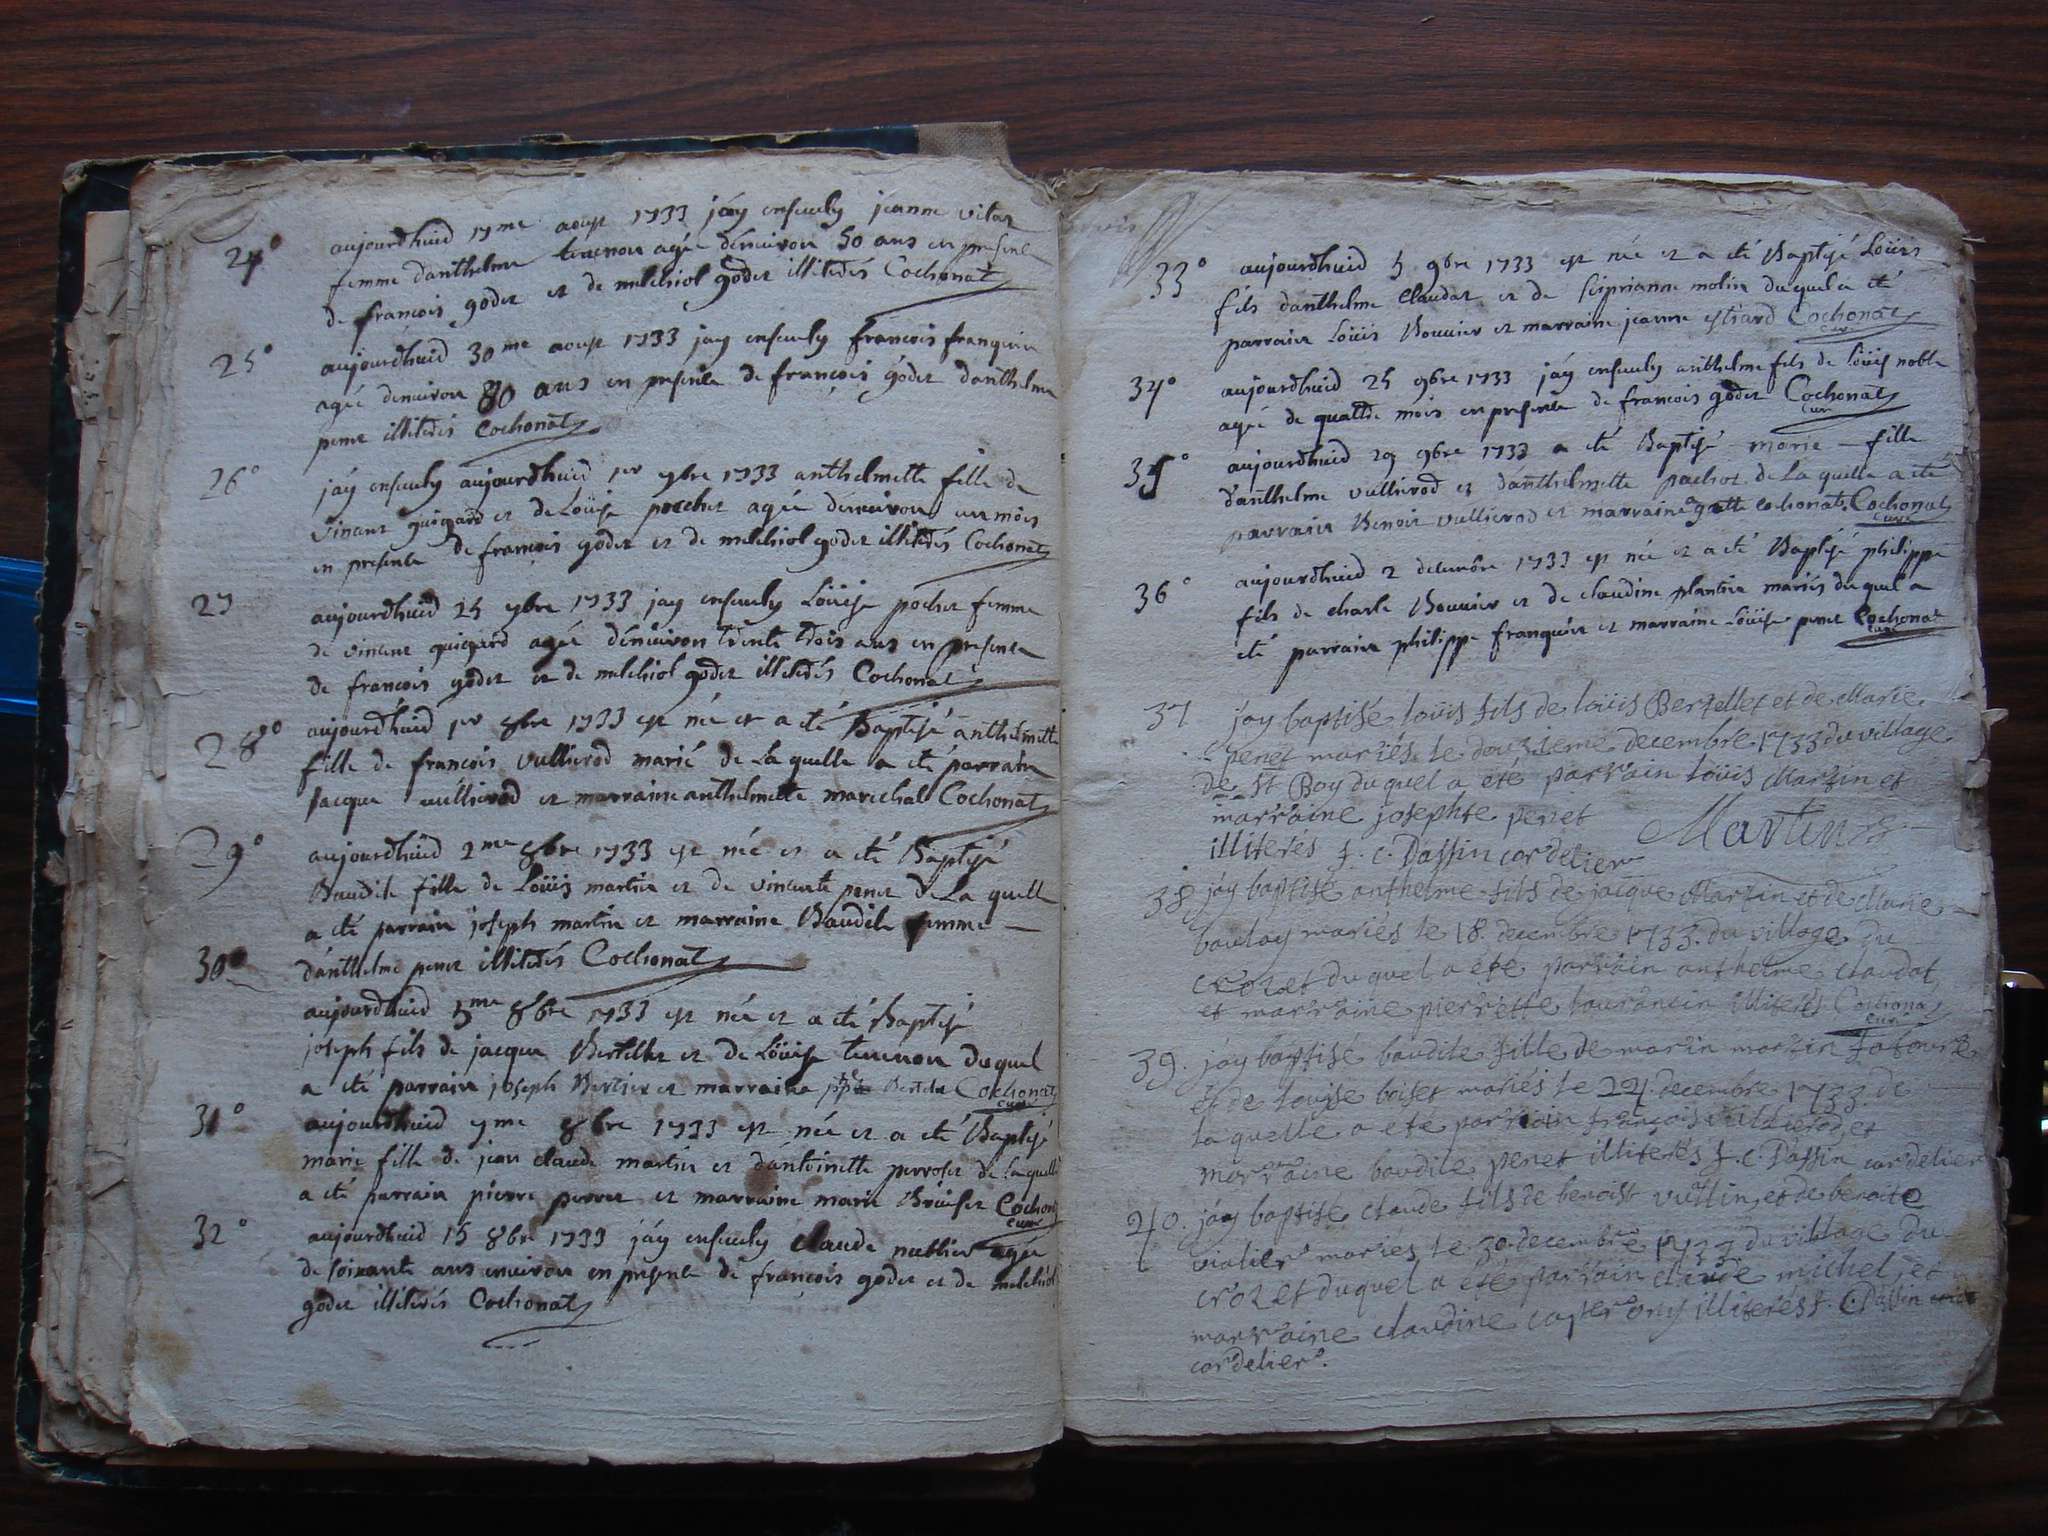 24° aujourdhuid 17me aoust 1733 jáy enseuely jeanne vitar
femme danthelme teuenon agée dénuiron 50 ans en presence
de françois godet et de melchiol godet illiterés Cochonat
25° aujourdhuid 30me aoust 1733 jay enseuely francois franquin
agée denuiron 80 ans en presence de françois goder danthelme
penet illiterés Cochonat
26° jáy enseuely aujourdhuid 1er 7bre 1733 anthelmette fille de
vincent guigard et de Loüise pochet agée dénuiron un mois
en presence de françois godet et de melchiol godet illiterés Cochonat
27 aujourdhuid 25 7bre 1733 jay enseuely Loüise pochet femme
de vincent guigard agée dénuiron trente trois ans en presence
de francois godet et de melchiol godet illiterés Cochonat
28° aujourdhuid 1er 8bre 1733 est née et a eté Baptisé anthelmette
fille de francois vullierod marié de La quelle a eté parrain
jacque vullierod et marraine anthelmette marechal Cochonat
29° aujourdhuid 2me 8bre 1733 est née et a eté Baptisé
Baudile fille de Loüis martin et de vincente penet de La quelle
a eté parrain joseph martin et marraine Baudile femme
dánthelme penet illiterés Cochonat
30° aujourdhuid 5me 8bre 1733 est née et a eté Baptisé
joseph fils de jacque Bertellet et de Loüise teuenon duquel
a eté parrain joseph Bertier et marraine Bertelet Cochonat
curé
31° aujourdhuid 7me 8bre 1733 est née et a eté Baptisé
marie fille de jean claude martin et dantoinette perroset de Laquelle
a eté parrain pierre perret et marraine marie Cochonat
curé
32° aujourdhuid 15 8bre 1733 jáy enseuely claude agée
de soixante ans enuiron en presence de françois godet et de melchiol
godet illiterés Cochonat
33° aujourdhuid 5 9bre 1733 est née et a eté Baptisé Loüis
fils danthelme Claudat et de siprianne molin duquel a eté
parrain Loüis Bouuier et marraine jeanne Cochonat
curé
34° aujourdhuid 25 9bre 1733 jáy enseuely anthelme fils de Loüis noble
agée de quattre mois en presence de francois godet Cochonat
curé
35° aujourdhuid 29 9bre 1733 a eté Baptisé marie fille
dánthelme vullierod et dánthelmette pochot de La quelle a eté
parrain Benoit vullierod et marraine cochonat Cochonat
curé
36° aujourdhuid 2 decembre 1733 est née et a eté Baptisé philippe
fils de charle Bouuier et de claudine plantin mariés du quel a
eté parrain philippe franquin et marraine Loüise penet Cochonat
curé
37 jáy baptisé loüis fils de loüis Bertellet et de Marie
penet mariés le douzieme decembre 1733 du village
de St Boy duquel a eté parrain loüis Martin et
marraine josephte penet
illiterés f. c. Dassin cordelier Martin
38 jáy baptisé anthelme fils de jacque Martin et de Marie
bouloy mariés le 18. decembre 1733. du village du
crozet duquel a eté parrain anthelme claudat
et marraine pierrette laurencin illiterés Cochonat
curé
39. jay baptisé baudile fille de marin martin
et de louise boiset mariés le 24. decembre 1733. de
laquelle a eté parrain françois vullierod, et
marraine baudile penet illiterés f. c. Dassin cordelier
40. jáy baptisé claude fils de benoist vullin, et de benoite
violier mariés le 30. decembre 1733 du village du
crozet duquel a eté parrain claude michel, et
marraine claudine illiterés f. C. Dassin
cordelier.